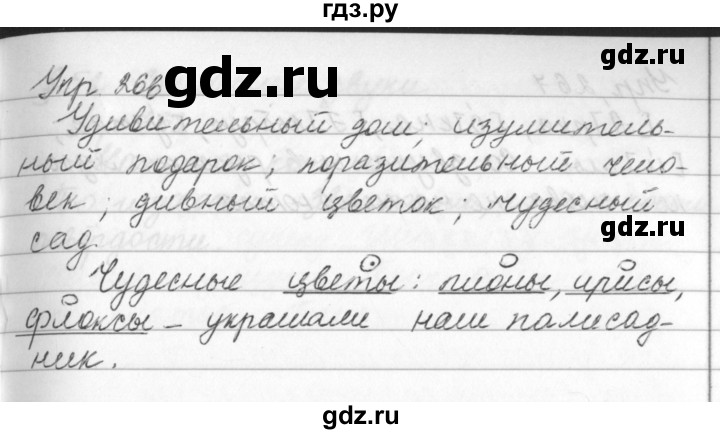 гдз.ру
gdz.ru
gdz.ru
Упр. 268
Удивительный дом, изумитель-
ный подарок; поразительный чело-
век; дивный цветок; чудесный
сад.
gdz.ru
Чудесные цветы: пионы, ирисы,
флоксы – украшали наш палисад-
ник.
gdz.ru